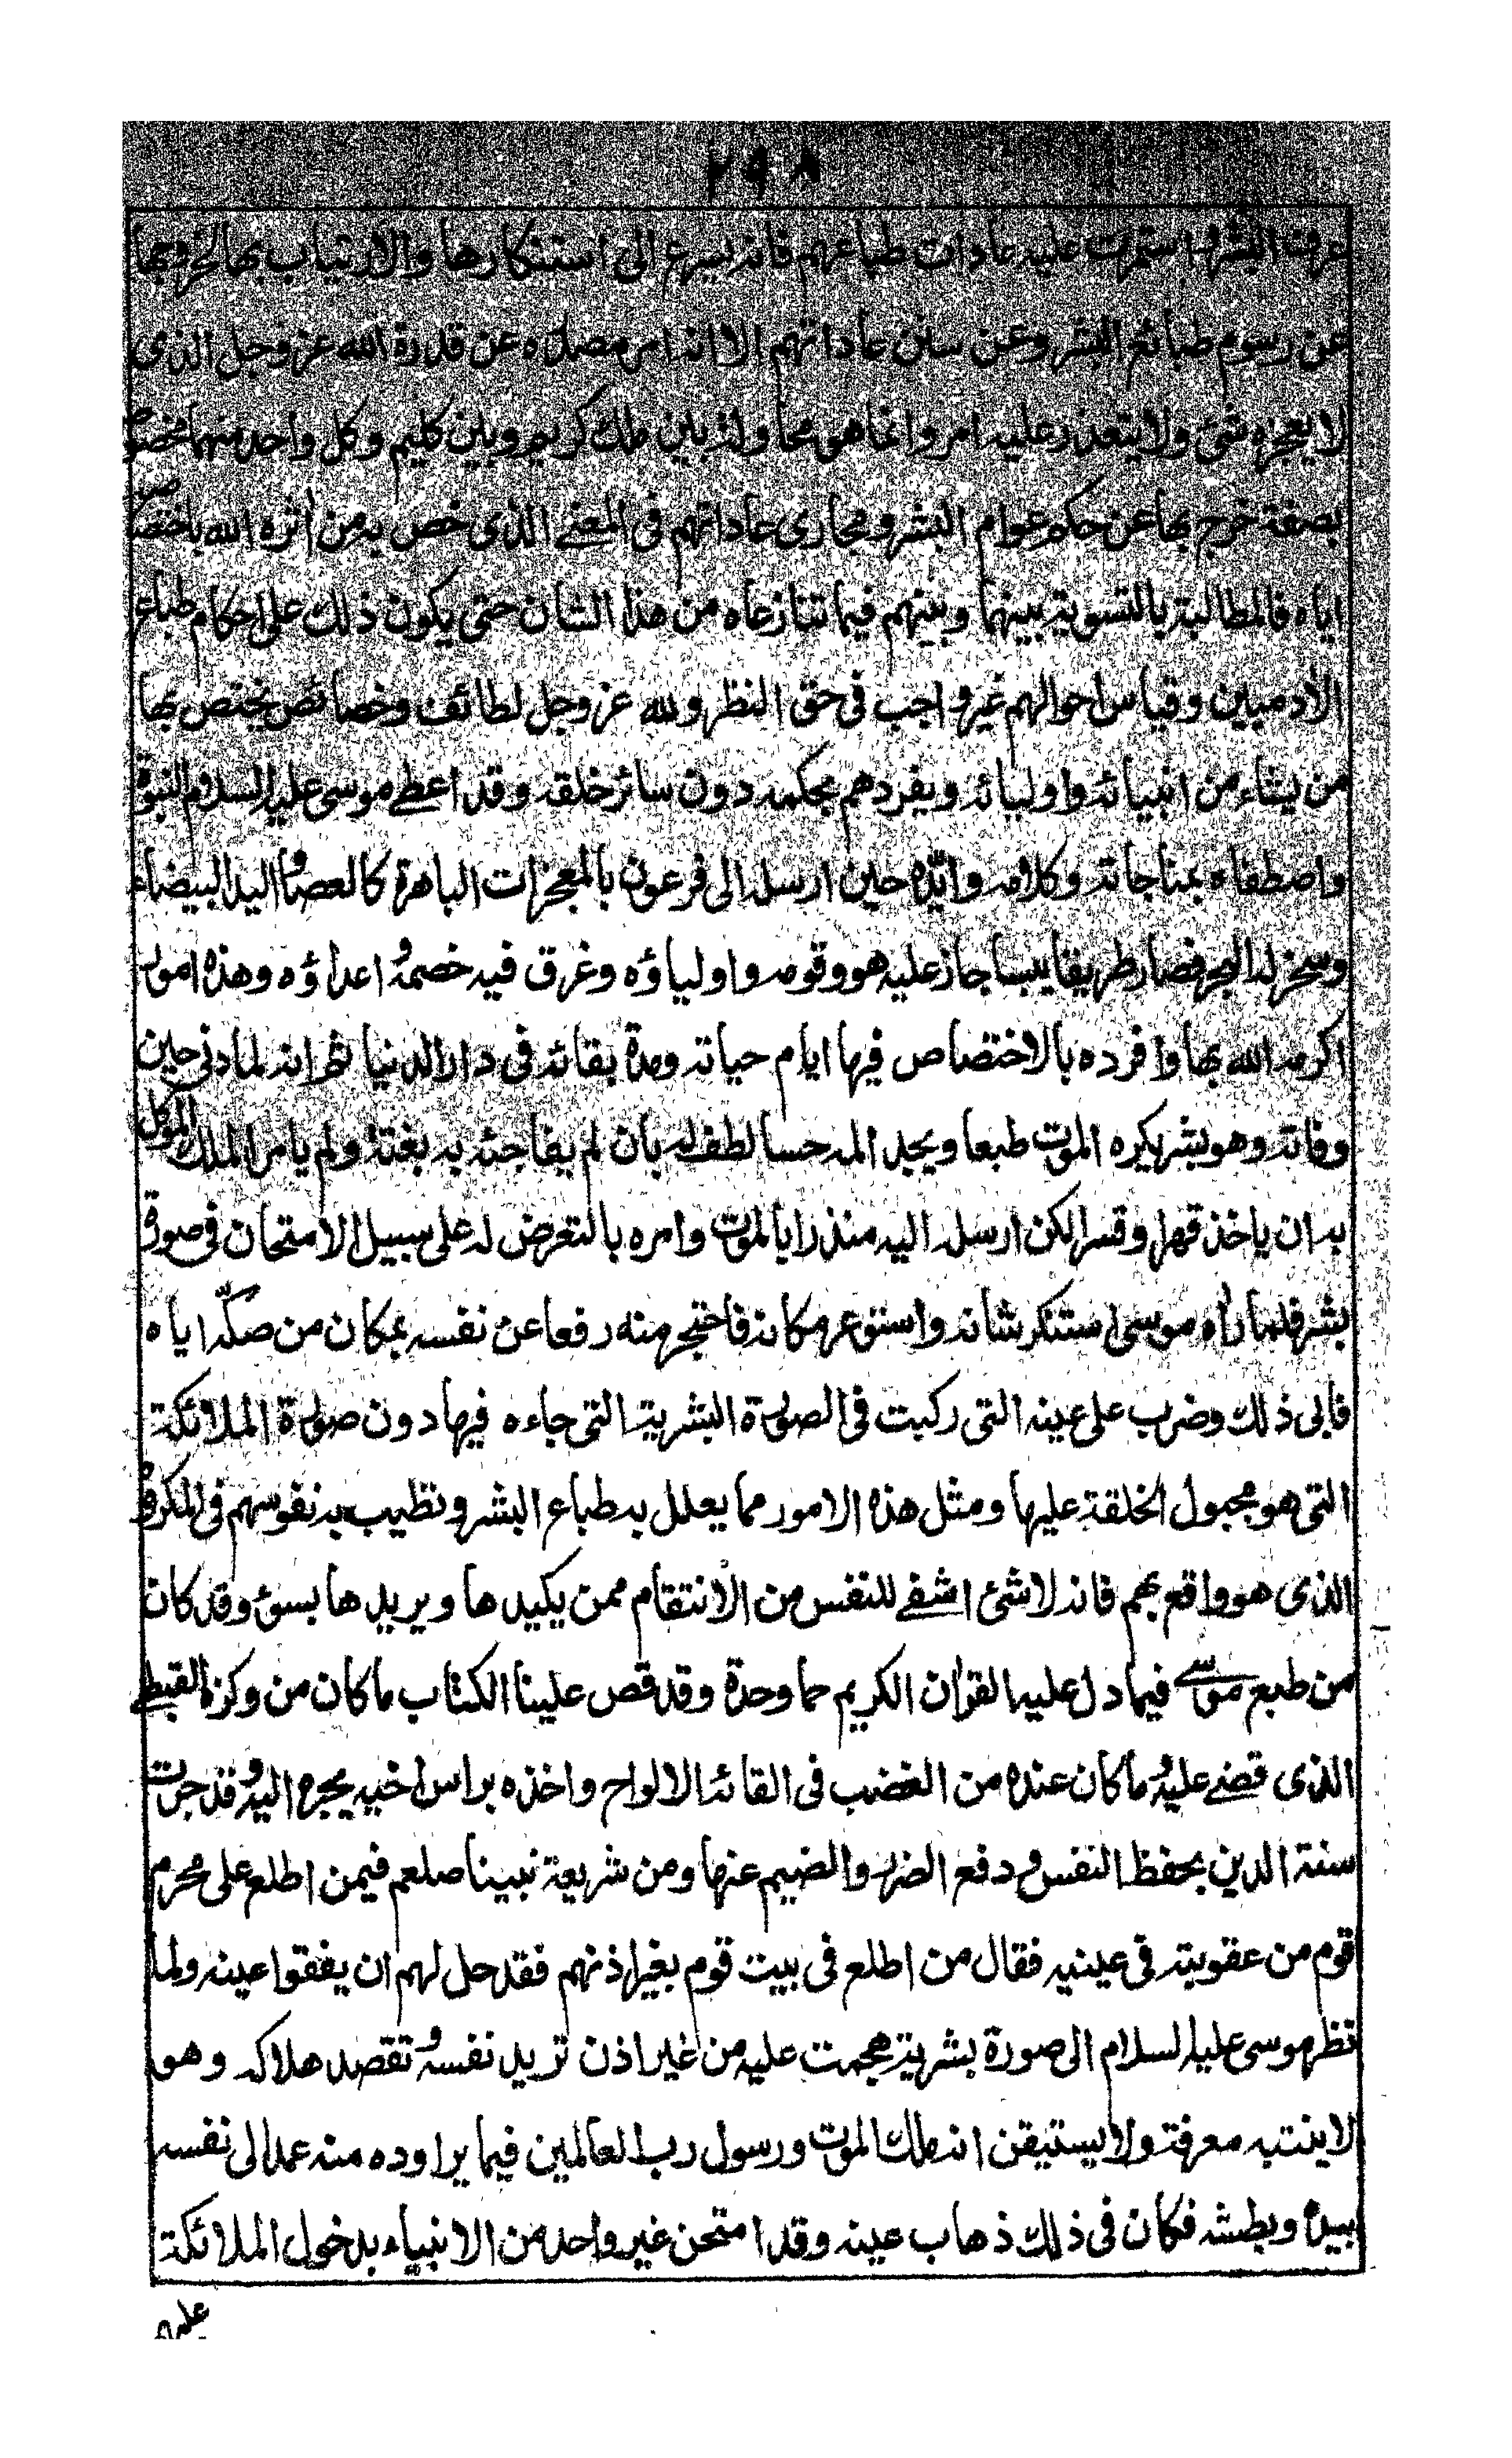 ٢٩٨
عرف البشر واستمرت عليه عادات طباعهم فانه يسرع الى استنكارها والارتياب بها لخروجها
عن رسوم طبائع البشر وعن سنن عاداتهم الا انه امر مصدره عن قدرة الله عز وجل الذى
لا يعجزه شئ ولا يتعذر عليه امر وانما هو محاولة بين ملك كريم وبين كليم وكل واحد منهما مخصوص
بصفة خرج بها عن حكم عوام البشر ومجارى عاداتهم فى المعنے الذى خص به من اثره الله باختصاصه
اياه فالمطالبة بالتسوية بينهما وبينهم فيما تنازعاه من هذا الشان حتى يكون ذلك على احكام طباع
الادميين وقياس احوالهم غير واجب فى حق النظر ولله عز وجل لطائف وخصائص يختص بها
من يشاء من انبيائه واوليائه ويفردهم بحكمه دون سائر خلقه وقد اعطے موسى عليه السلام النبوة
واصطفاه بمناجاته وكلامه وايّده حين ارسله الى فرعون بالمعجزات الباهرة كالعصا واليد البيضاء
وسخر له البحر فصار طريقا يبسا جاز عليه هو وقومه واولياؤه وغرق فيه خصمه واعداؤه وهذه امور
اكرمه الله بها وافرده بالاختصاص فيها ايام حياته ومدة بقائه فى دار الدنيا ثم انه لما دنى حين
وفاته وهو بشر يكره الموت طبعا ويجد المه حسا لطف له بان لم يفاجئه به بغتة ولم يامر الملك الموكل
به ان ياخذ قهرا وقسرا لكن ارسله اليه منذرا بالموت وامره بالتعرض له على سبيل الامتحان فى صورة
بشر فلما راٰه موسى استنكر شانه واستوعر مكانه فاحتجر منه دفعا عن نفسه بمكان من صكّه اياه
فابى ذلك وضرب على عينه التى ركبت فى الصورة البشرية التى جاءه فيها دون صورة الملائكة
التى هو مجبول الخلقة عليها ومثل هذه الامور مما يعلل به طباع البشر وتطيب به نفوسهم فى المكروه
الذى هو واقع بهم فانه لا شئ اشفے للنفس من الانتقام ممن يكيدها ويريدها بسوء وقد كان
من طبع موسےٰ فيما دل عليه القراٰن الكريم حما وحدة وقد قص علينا الكتاب ما كان من وكزه القبطے
الذى قضے عليه وما كان عنده من الغضب فى القائه الالواح واخذه براس اخيه يجره اليه وقد جرت
سنة الدين بحفظ النفس ودفع الضرر والضيم عنها ومن شريعة نبينا صلعم فيمن اطلع على محرم
قوم من عقوبته فى عينيه فقال من اطلع فى بيت قوم بغير اذنهم فقد حل لهم ان يفقوا عينه ولما
نظر موسى عليه السلام الى صورة بشرية هجمت عليه من غير اذن تريد نفسه وتقصد هلاكه وهو
لا ينتبه معرفة ولا يستيقن انه ملك الموت ورسول رب العالمين فيما يراوده منه عمد الى نفسه
بيده وبطشه فكان فى ذلك ذهاب عينه وقد امتحن غير واحد من الانبياء بدخول الملائكة